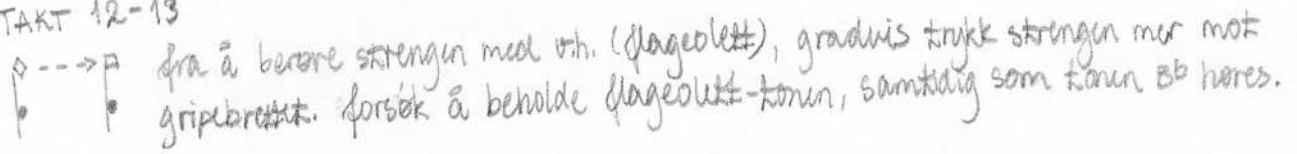 TAKT 12-13
fra å berøre strengen med v.h. (flageolett), graduis trykk strengen mer mot
gripebrettet. forsøk å beholde flageolett-tonen, samtidig som tonen Bb høres.